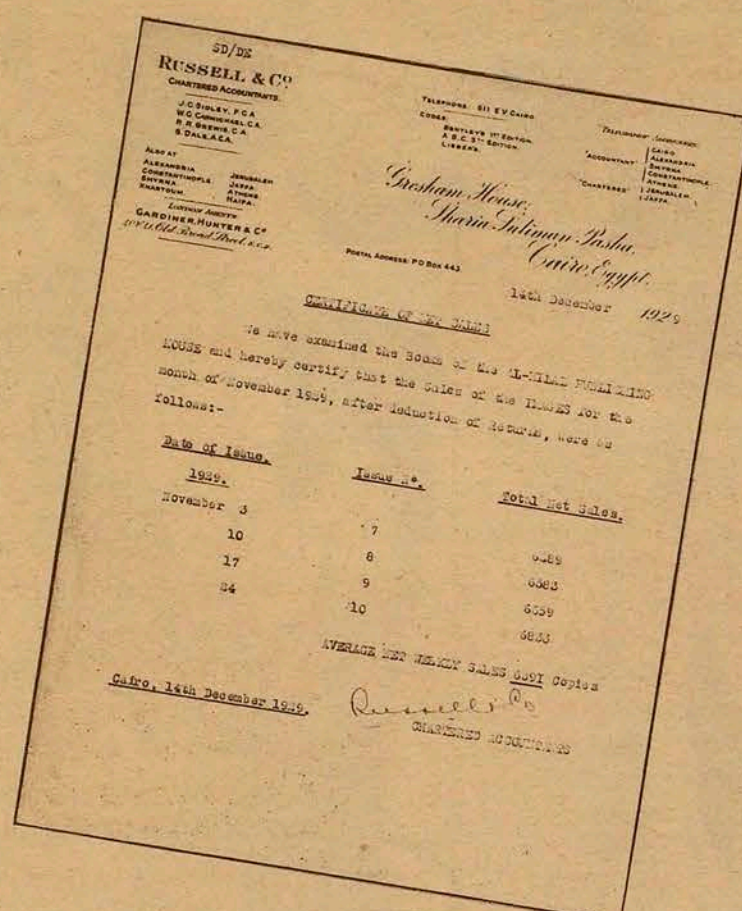 SD/DE
RUSSELL & Co
CHARTERED ACCOUNTANTS.
J.C. SIDLEY, F.C.A.
W.C. CARMICHAEL, C.A.
R.R. BREWIS, C.A.
S. DALE, A.C.A.
ALSO AT
ALEXANDRIA. JERUSALEM
CONSTANTINOPLE. JAFFA.
SMYRNA. ATHENS.
KHARTOUM. HAIFA.
LONDON AGENTS
GARDINER, HUNTER & Co
Old Broad Street, E.C.2.
TELEPHONE 511 EV CAIRO
CODES:
BENTLEY'S 1ST EDITION.
A.B.C. 5TH EDITION.
LIEBERS.
"ACCOUNTANT" CAIRO
ALEXANDRIA
SMYRNA
CONSTANTINOPLE
"CHARTERED" ATHENS
JERUSALEM
JAFFA.
Gresham House,
Sharia Suliman Pasha,
Cairo, Egypt.
POSTAL ADDRESS: P O BOX 443.
14th December 1929
CERTIFICATE OF NET SALES
We have examined the Books of the AL-HILAL PUBLISHING
HOUSE and hereby certify that the Sales of the IMAGES for the
month of November 1929, after deduction of Returns, were as
follows:-
Date of Issue. Issue No. Total Net Sales.
1929.
November 3 7
10 8
17 9 6383
24 10 6559
6833
AVERAGE NET WEEKLY SALES 6591 Copies
Cairo, 14th December 1929.
Russell & Co
CHARTERED ACCOUNTANTS